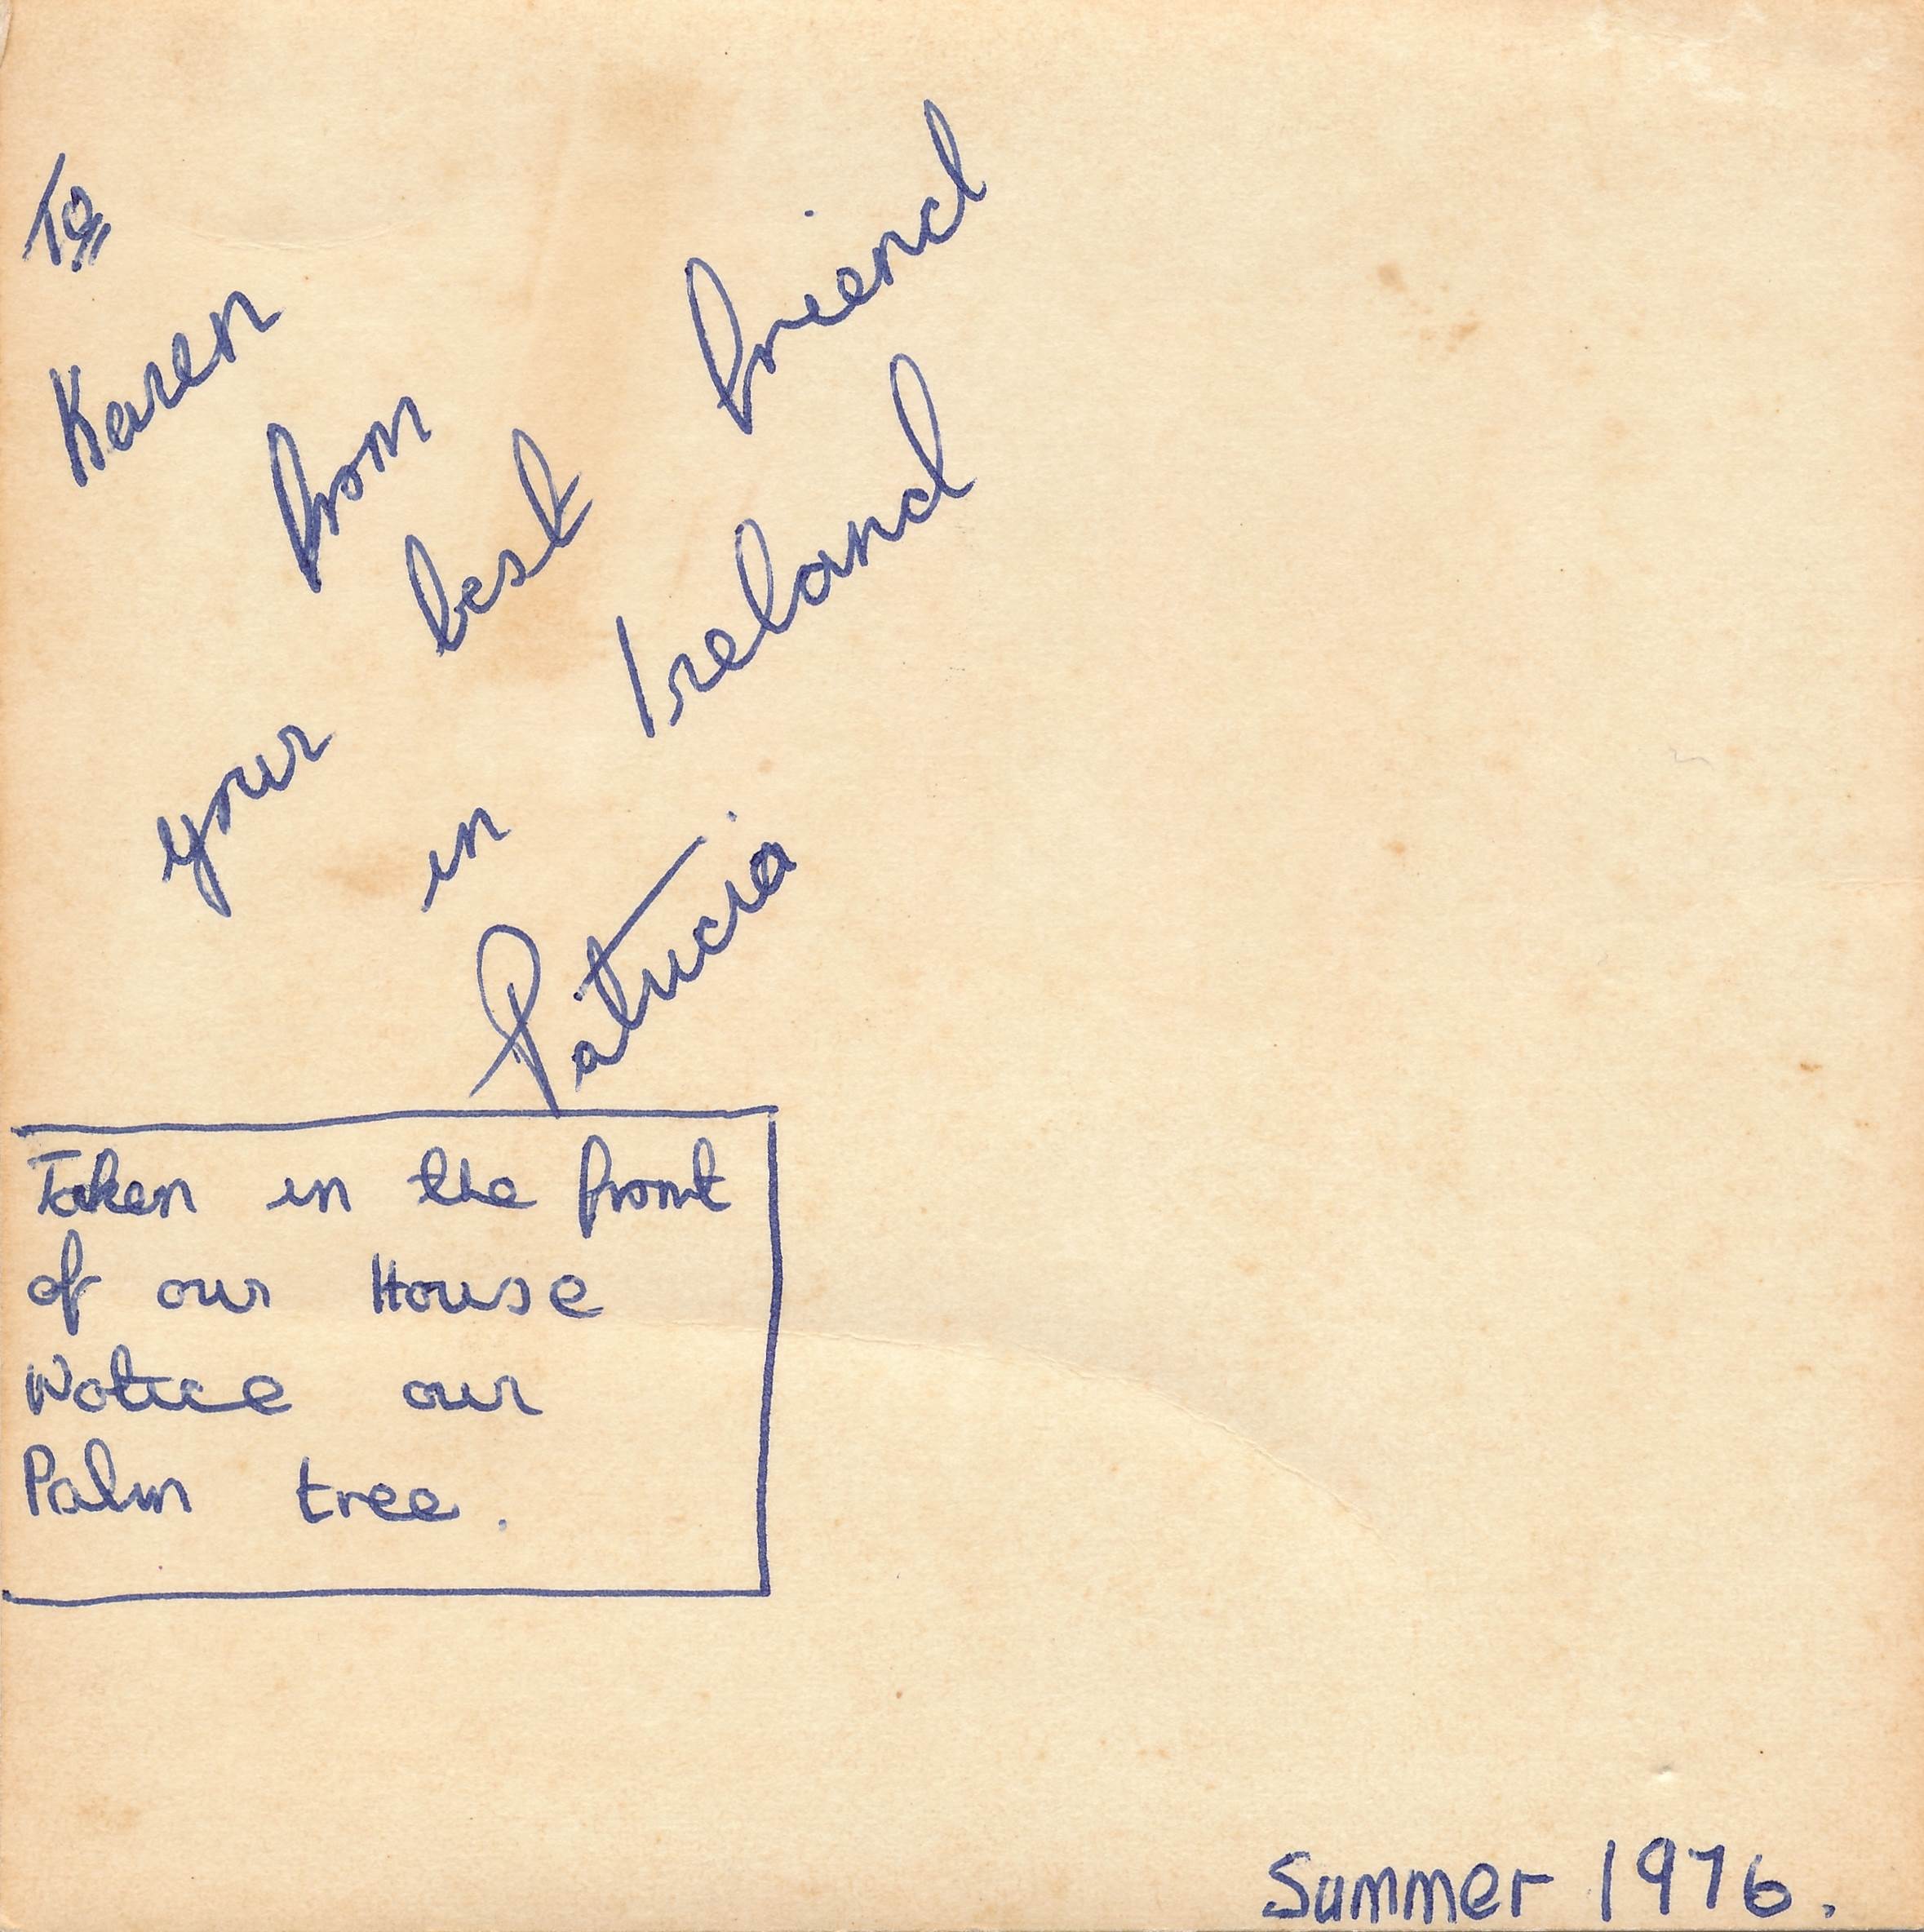 To
Karen
from
your best friend
in Ireland
Patricia
Taken in the front
of our House
Notice our
Palm tree.
Summer 1976.